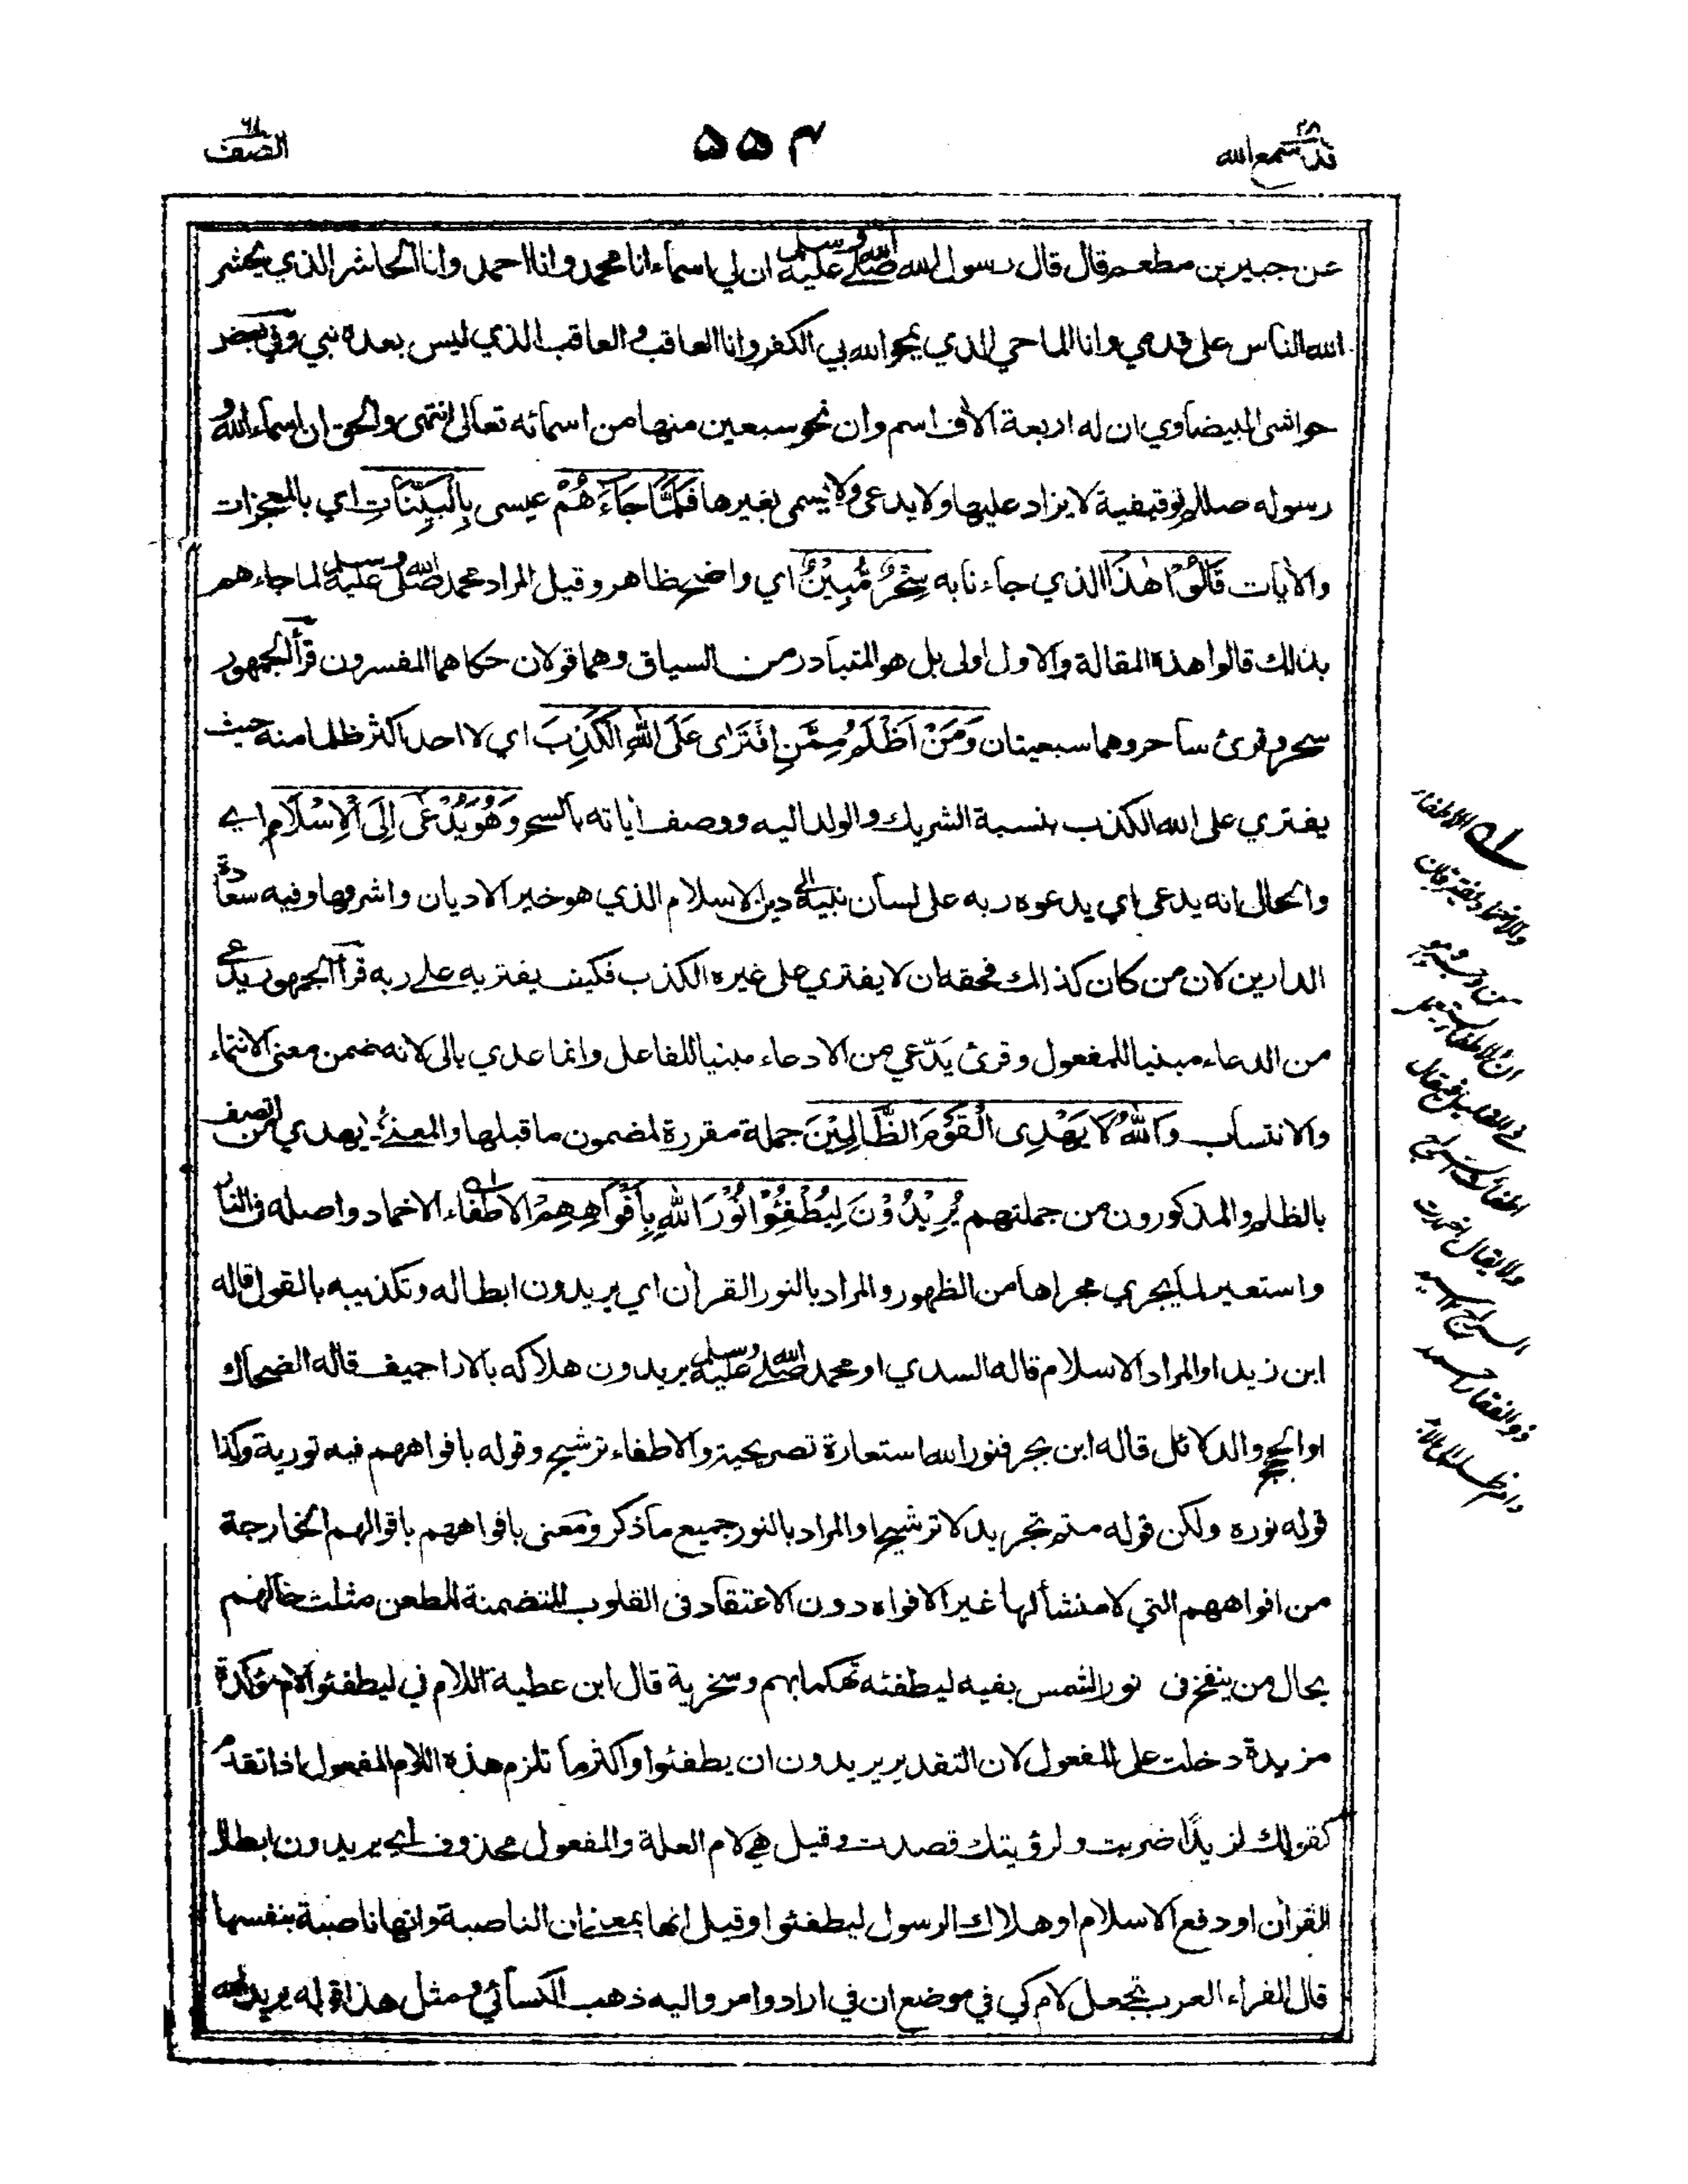 قد سمع الله ٢٨
٥٥٤
الصف ٦١
عن جبير بن مطعم قال قال رسول الله صلى الله عليه وسلم ان لي اسماء انا محمد وانا احمد وانا الحاشر الذي يحشر
الله الناس على قدمي وانا الماحي الذي يمحو الله بي الكفر وانا العاقب والعاقب الذي ليس بعده نبي وفي بعض
حواشي البيضاوي ان له اربعة الاف اسم وان نحو سبعين منها من اسمائه تعالى انتهى والحق ان اسماء الله و
رسوله صللم توقيفية لا يزاد عليها ولا يدعى ولا يسمى بغيرها فَلَمَّا جَاءَهُمْ عيسى بِالْبَيِّنَاتِ اي بالمعجزات
والأيات قَالُوْا هٰذَا الذي جاءنا به سِحْرٌ مُّبِيْنٌ اي واضح ظاهر وقيل المراد محمد صلى الله عليه وسلم لما جاءهم
بذلك قالوا هذه المقالة والاول اولى بل هو المتبادر من السياق وهما قولان حكاهما المفسرون قرأ الجمهور
سحر وقرئ ساحر وهما سبعيتان وَمَنْ اَظْلَمُ مِمَّنِ افْتَرٰى عَلَى اللّٰهِ الْكَذِبَ اي لا احد اكثر ظلما منه حيث
يفتري على الله الكذب بنسبة الشريك والولد اليه ووصف أياته بالسحر وَهُوَ يُدْعٰى اِلَى الْاِسْلَامِ اي
والحال انه يدعى اي يدعوه ربه على لسان نبيه الى دين الاسلام الذي هو خير الاديان واشرفها وفيه سعادة
الدارين لان من كان كذلك فحقه ان لا يفتري على غيره الكذب فكيف يفتريه على ربه قرأ الجمهور يدعى
من الدعاء مبنيا للمفعول وقرئ يَدّعي من الادعاء مبنيا للفاعل وانما عدي بالى لانه ضمن معنى الانتماء
والانتساب وَاللّٰهُ لَا يَهْدِى الْقَوْمَ الظَّالِمِيْنَ جملة مقررة لمضمون ما قبلها والمعنى لا يهدي من اتصف
بالظلم والمذكورون من جملتهم يُرِيْدُوْنَ لِيُطْفِئُوْا نُوْرَ اللّٰهِ بِاَفْوَاهِهِمْ الاطفاء الاخماد واصله في النار
واستعير لما يجري مجراها من الظهور والمراد بالنور القرأن اي يريدون ابطاله وتكذيبه بالقول قاله
ابن زيد او المراد الاسلام قاله السدي او محمد صلى الله عليه وسلم يريدون هلاكه بالاراجيف قاله الضحاك
او الحجج والدلائل قاله ابن بحر فنور الله استعارة تصريحية والاطفاء ترشيح وقوله بافواههم فيه تورية وكذا
قوله نوره ولكن قوله متم تجريد لا ترشيح او المراد بالنور جميع ما ذكر ومعنى بافواههم باقوالهم الخارجة
من افواههم التي لا منشأ لها غير الافواه دون الاعتقاد في القلوب المتضمنة للطعن مثلت حالهم
بحال من ينفخ في نور الشمس بفيه ليطفئه تهكما بهم وسخرية قال ابن عطية اللام في ليطفئوا لام مؤكدة
مزيدة دخلت على المفعول لان التقدير يريدون ان يطفئوا واكثر ما تلزم هذه اللام المفعول اذا تقدم
كقولك لزيدًا ضربت ولرؤيتك قصدت وقيل هي لام العلة والمفعول محذوف اي يريدون ابطال
القرأن او دفع الاسلام او هلاك الرسول ليطفئوا وقيل انها بمعنى ان الناصبة وانها ناصبة بنفسها
قال الفراء العرب تجعل لام كي في موضع ان في اراد وامر واليه ذهب الكسائي ومثل هذا قوله يريد الله
له الاطفاء
والاخماد
ان الاطفاء يستعمل
في القليل فيقال
اطفأت السراج
ولا يقال اخمدت
السراج
ذو الفقار احمد